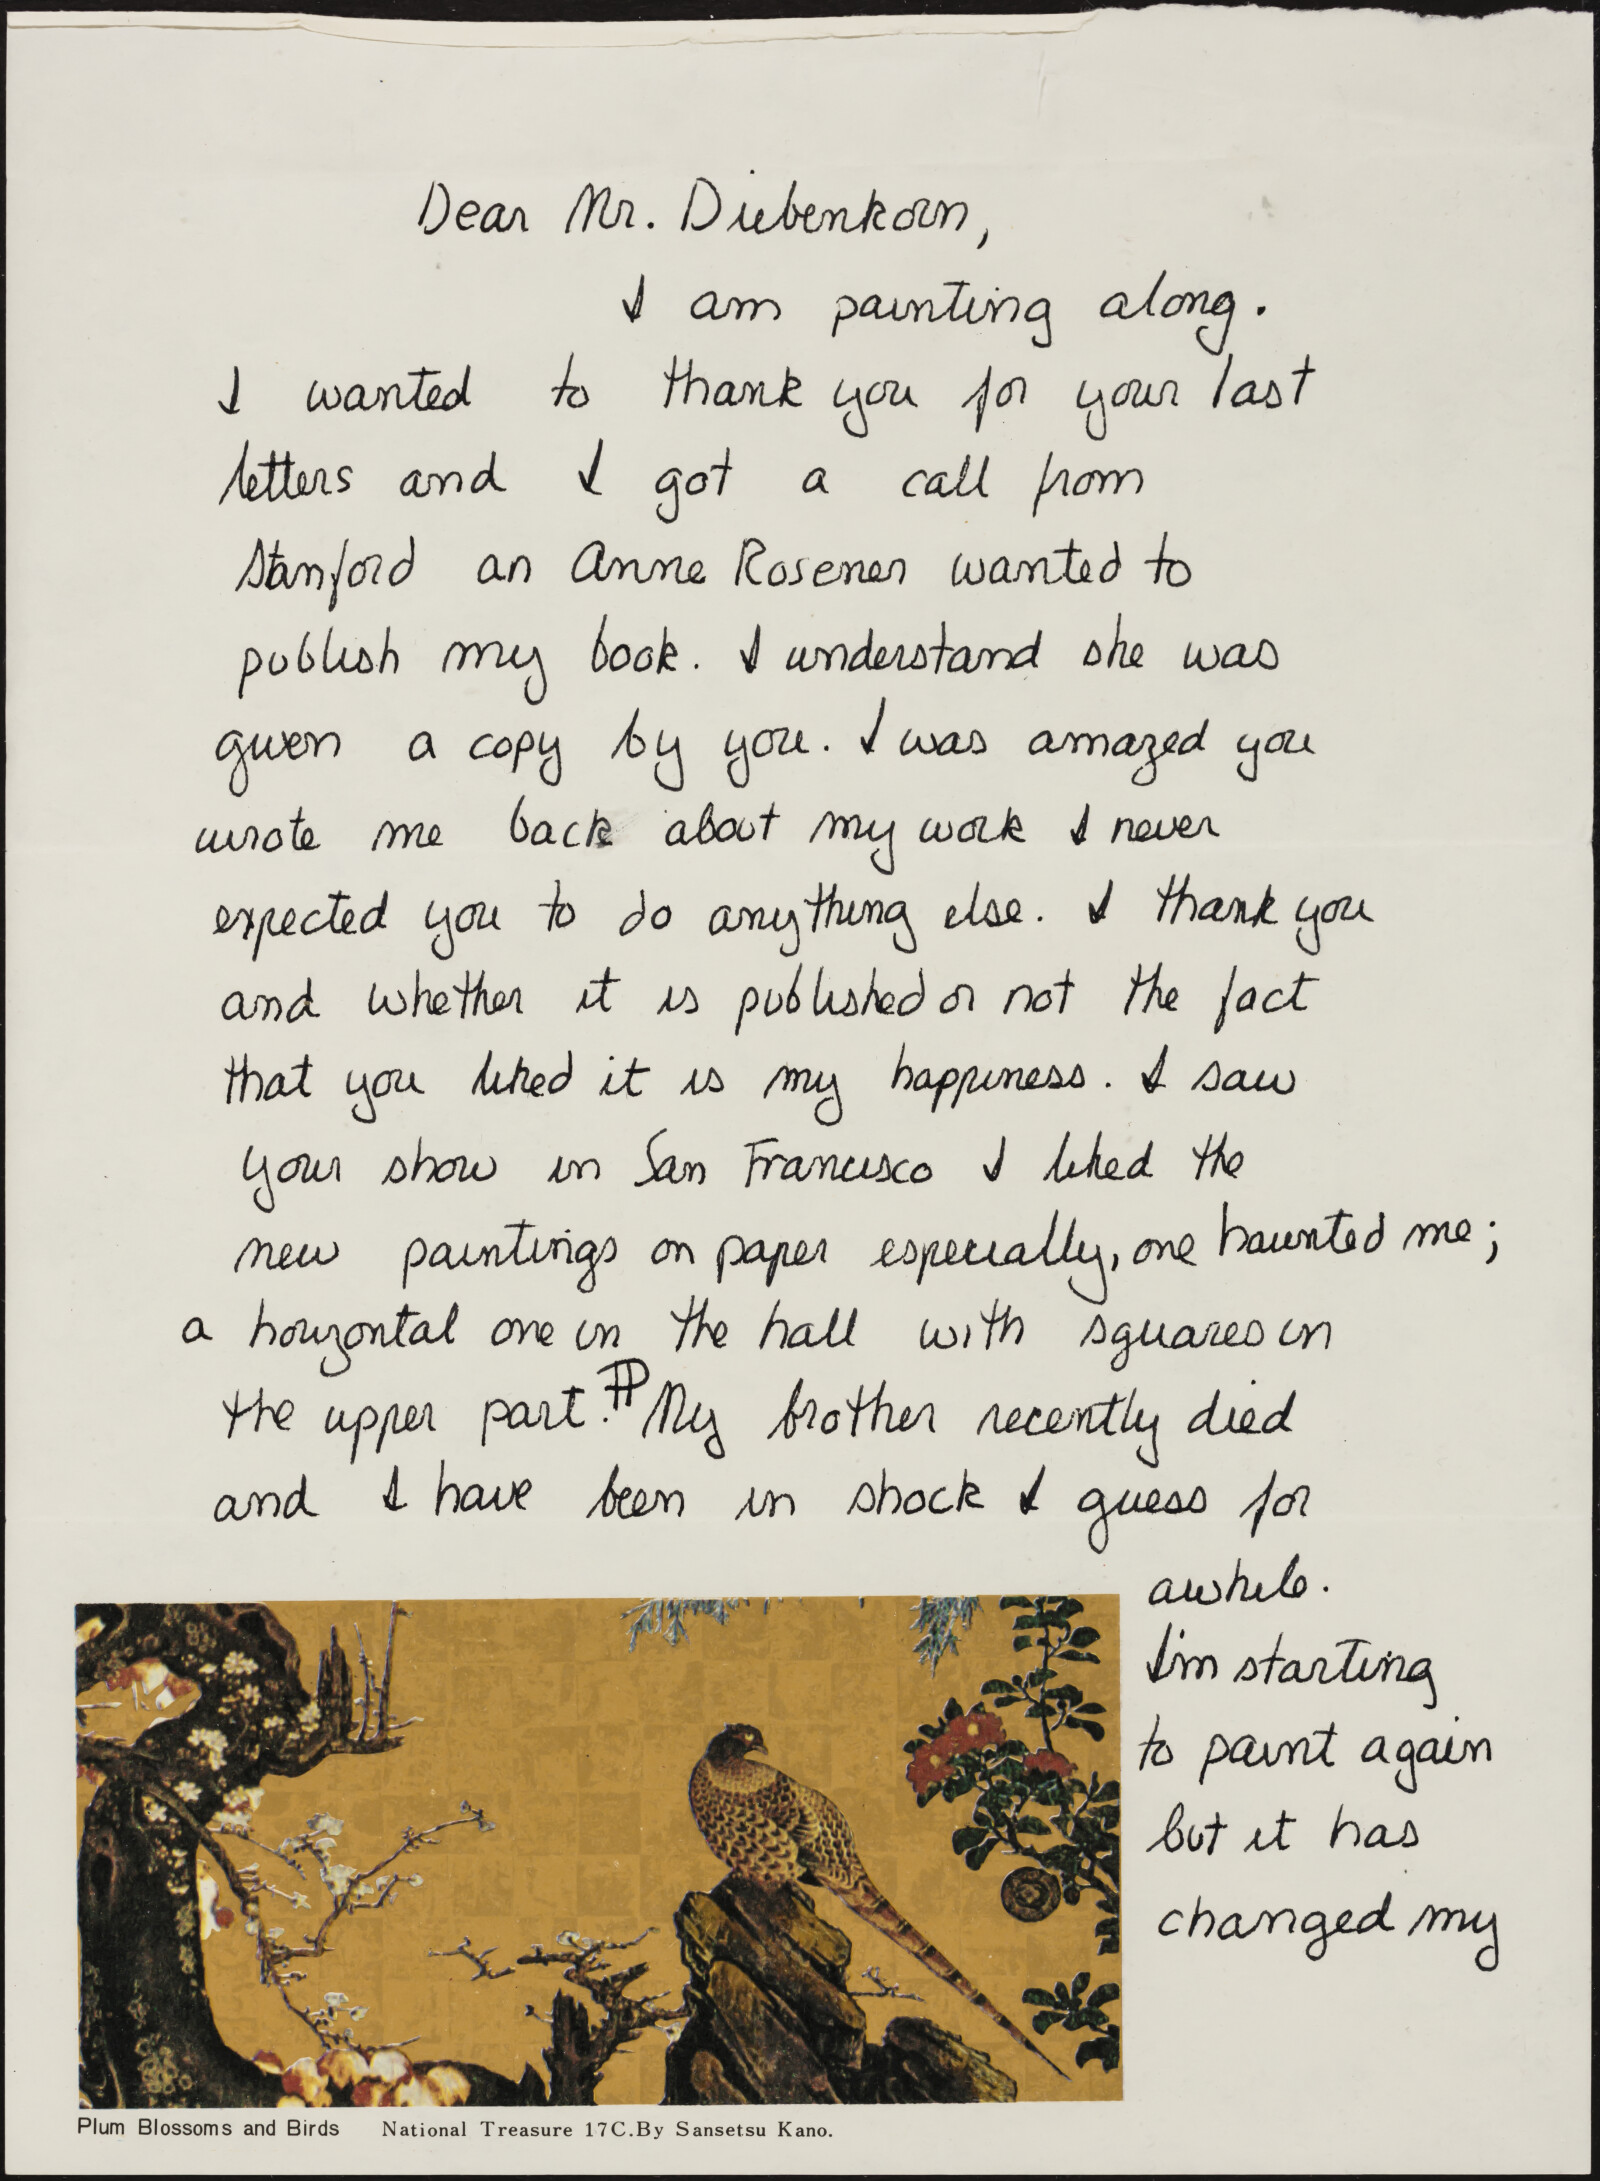 Dear Mr. Diebenkorn,
I am painting along.
I wanted to thank you for your last
letters and I got a call from
Stanford an Anne Rosener wanted to
publish my book. I understand she was
given a copy by you. I was amazed you
wrote me back about my work I never
expected you to do anything else. I thank you
and whether it is published or not the fact
that you liked it is my happiness. I saw
your show in San Francisco I liked the
new paintings on paper especially, one haunted me;
a horizontal one in the hall with squares in
the upper part. ¶ My brother recently died
and I have been in shock I guess for
awhile.
I'm starting
to paint again
but it has
changed my
Plum Blossoms and Birds National Treasure 17C.By Sansetsu Kano.